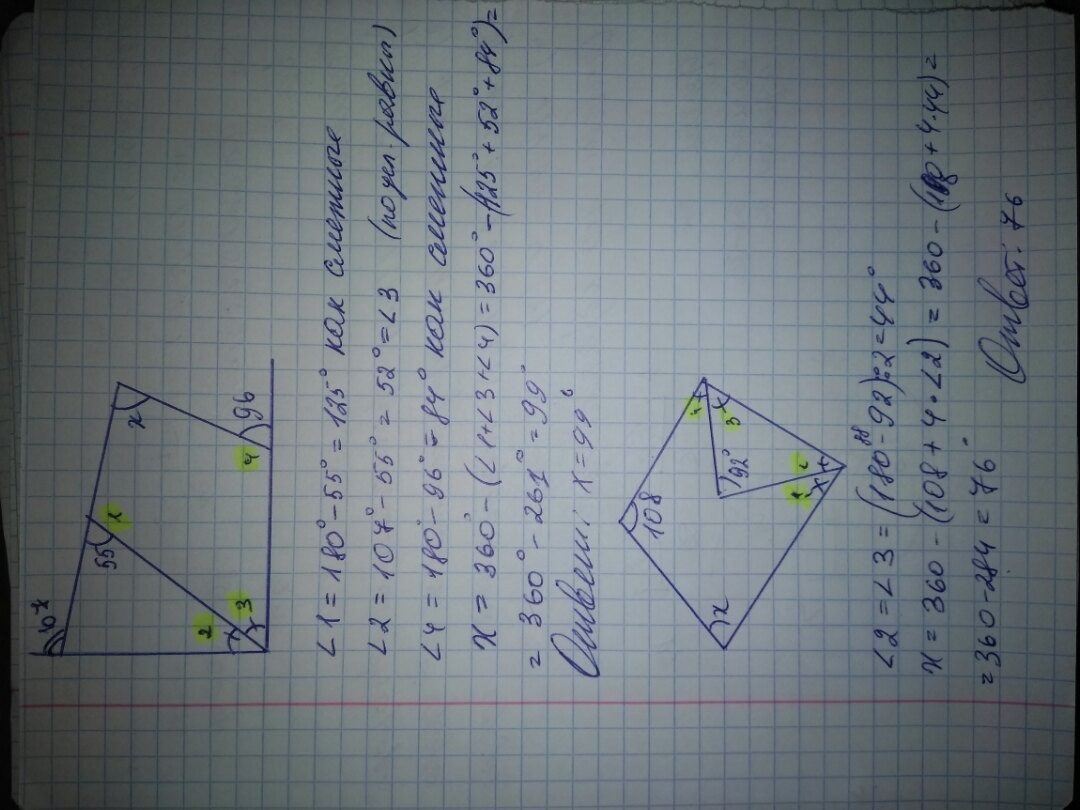 107
55
1
x
2
3
4
96
∠1 = 180° - 55° = 125° как смежные
∠2 = 107° - 55° = 52° = ∠3 (по усл. равны)
∠4 = 180° - 96° = 84° как смежные
x = 360° - (∠1 + ∠3 + ∠4) = 360° - (125° + 52° + 84°) =
= 360° - 261° = 99°
Ответ: x = 99°
108
92°
3
2
x
∠2 = ∠3 = (180° - 92) : 2 = 44°
88
x = 360 - (108 + 4 · ∠2) = 360 - (108 + 4 · 44) =
= 360 - 284 = 76°
Ответ: 76